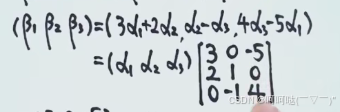 (β₁ β₂ β₃)=(3α₁+2α₂, α₂-α₃, 4α₃-5α₁)
=(α₁ α₂ α₃) [3 0 -5
2 1 0
0 -1 4]